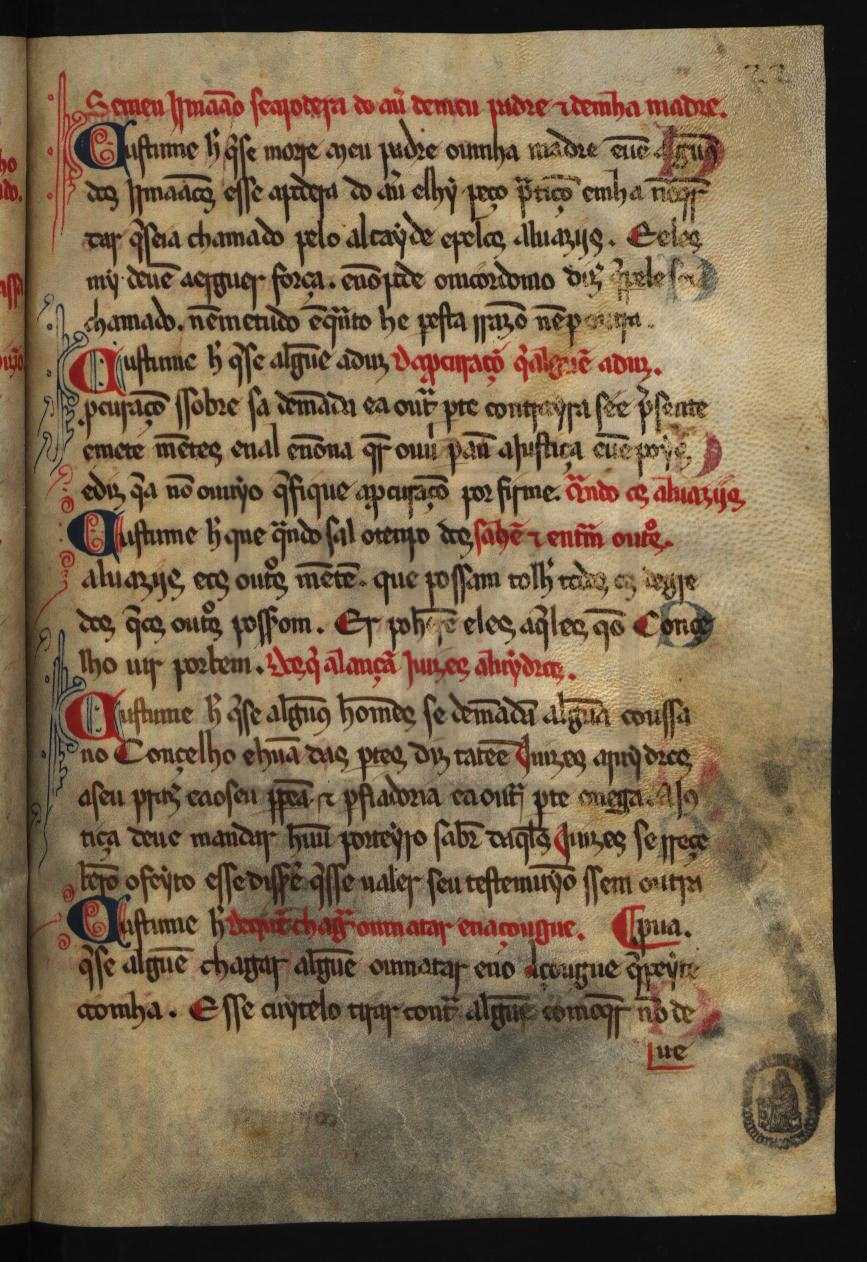 22
Se meu Irmaão se apodera do au̅ de meu padre ⁊ de mĩha madre.
Custume h̅ q̃ se morre meu padre ou minha madre e uẽ algũus
dos Irmaãos e sse apodera do au̅ e lhy peço p̃tiçõ e mha nẽ q̃r
dar q̃ seia chamado pelo alcayde e pelos aluazijs. E eles
my deuẽ a erguer força. e nõ pode o mcordomo diz̃ q̃ pele seia
chamado. nẽ metudo ẽ q̃nto he p esta rrazõ nẽ p outra.
Custume h̅ q̃ se algũe aduz Da p̱curaçõ q̃ alguẽ aduz.
p̱curaçõ ssobre sa demãda e a out̃ p̱te contrayra see p̃sente
e mete mẽtes en al e nõ na q̃r ouuir p̱ãt a Justiça e uẽ poys
e diz q̃ a nõ ouuyo q̃ fique a p̱curaçõ por firme. Q̃ndo os aluazijs
Custume h̅ que q̃ndo sal o tenpo dos sahẽ ⁊ entrã outros.
aluazijs e os outos mẽtẽ. que possam tolh̃ todos os degre
dos q̃ os outos possom. Er poh̃ rẽ eles aq̃les q̃ o Conçe
lho uir por bem. Dos q̃ alançã Juizes aluydros.
Custume h̅ q̃ se algũus homẽs se demãdã algũa coussa
no Conçelho e hũa das p̱tes diz tatẽe Juizes aruydros
a seu praz̃ e a o seu p̱p̱ea ⁊ p̱fiadoria e a out̃ p̱te o nega. A Jus
tiça deue mandar hũu porteyro sabr̃ daq̃les Juizes se rreçe
berõ o feyto e sse dissẽr q̃ sse ualer seu testemuỹo ssem outra
Custume h̅ De quẽ chagar ou matar en açougue. p̱ua.
q̃ se alguẽ chagar alguẽ ou matar eno Açougue q̃ peyte
a coomha. E sse cuytelo tirar cont̃ alguẽ como q̃r nõ de
ue